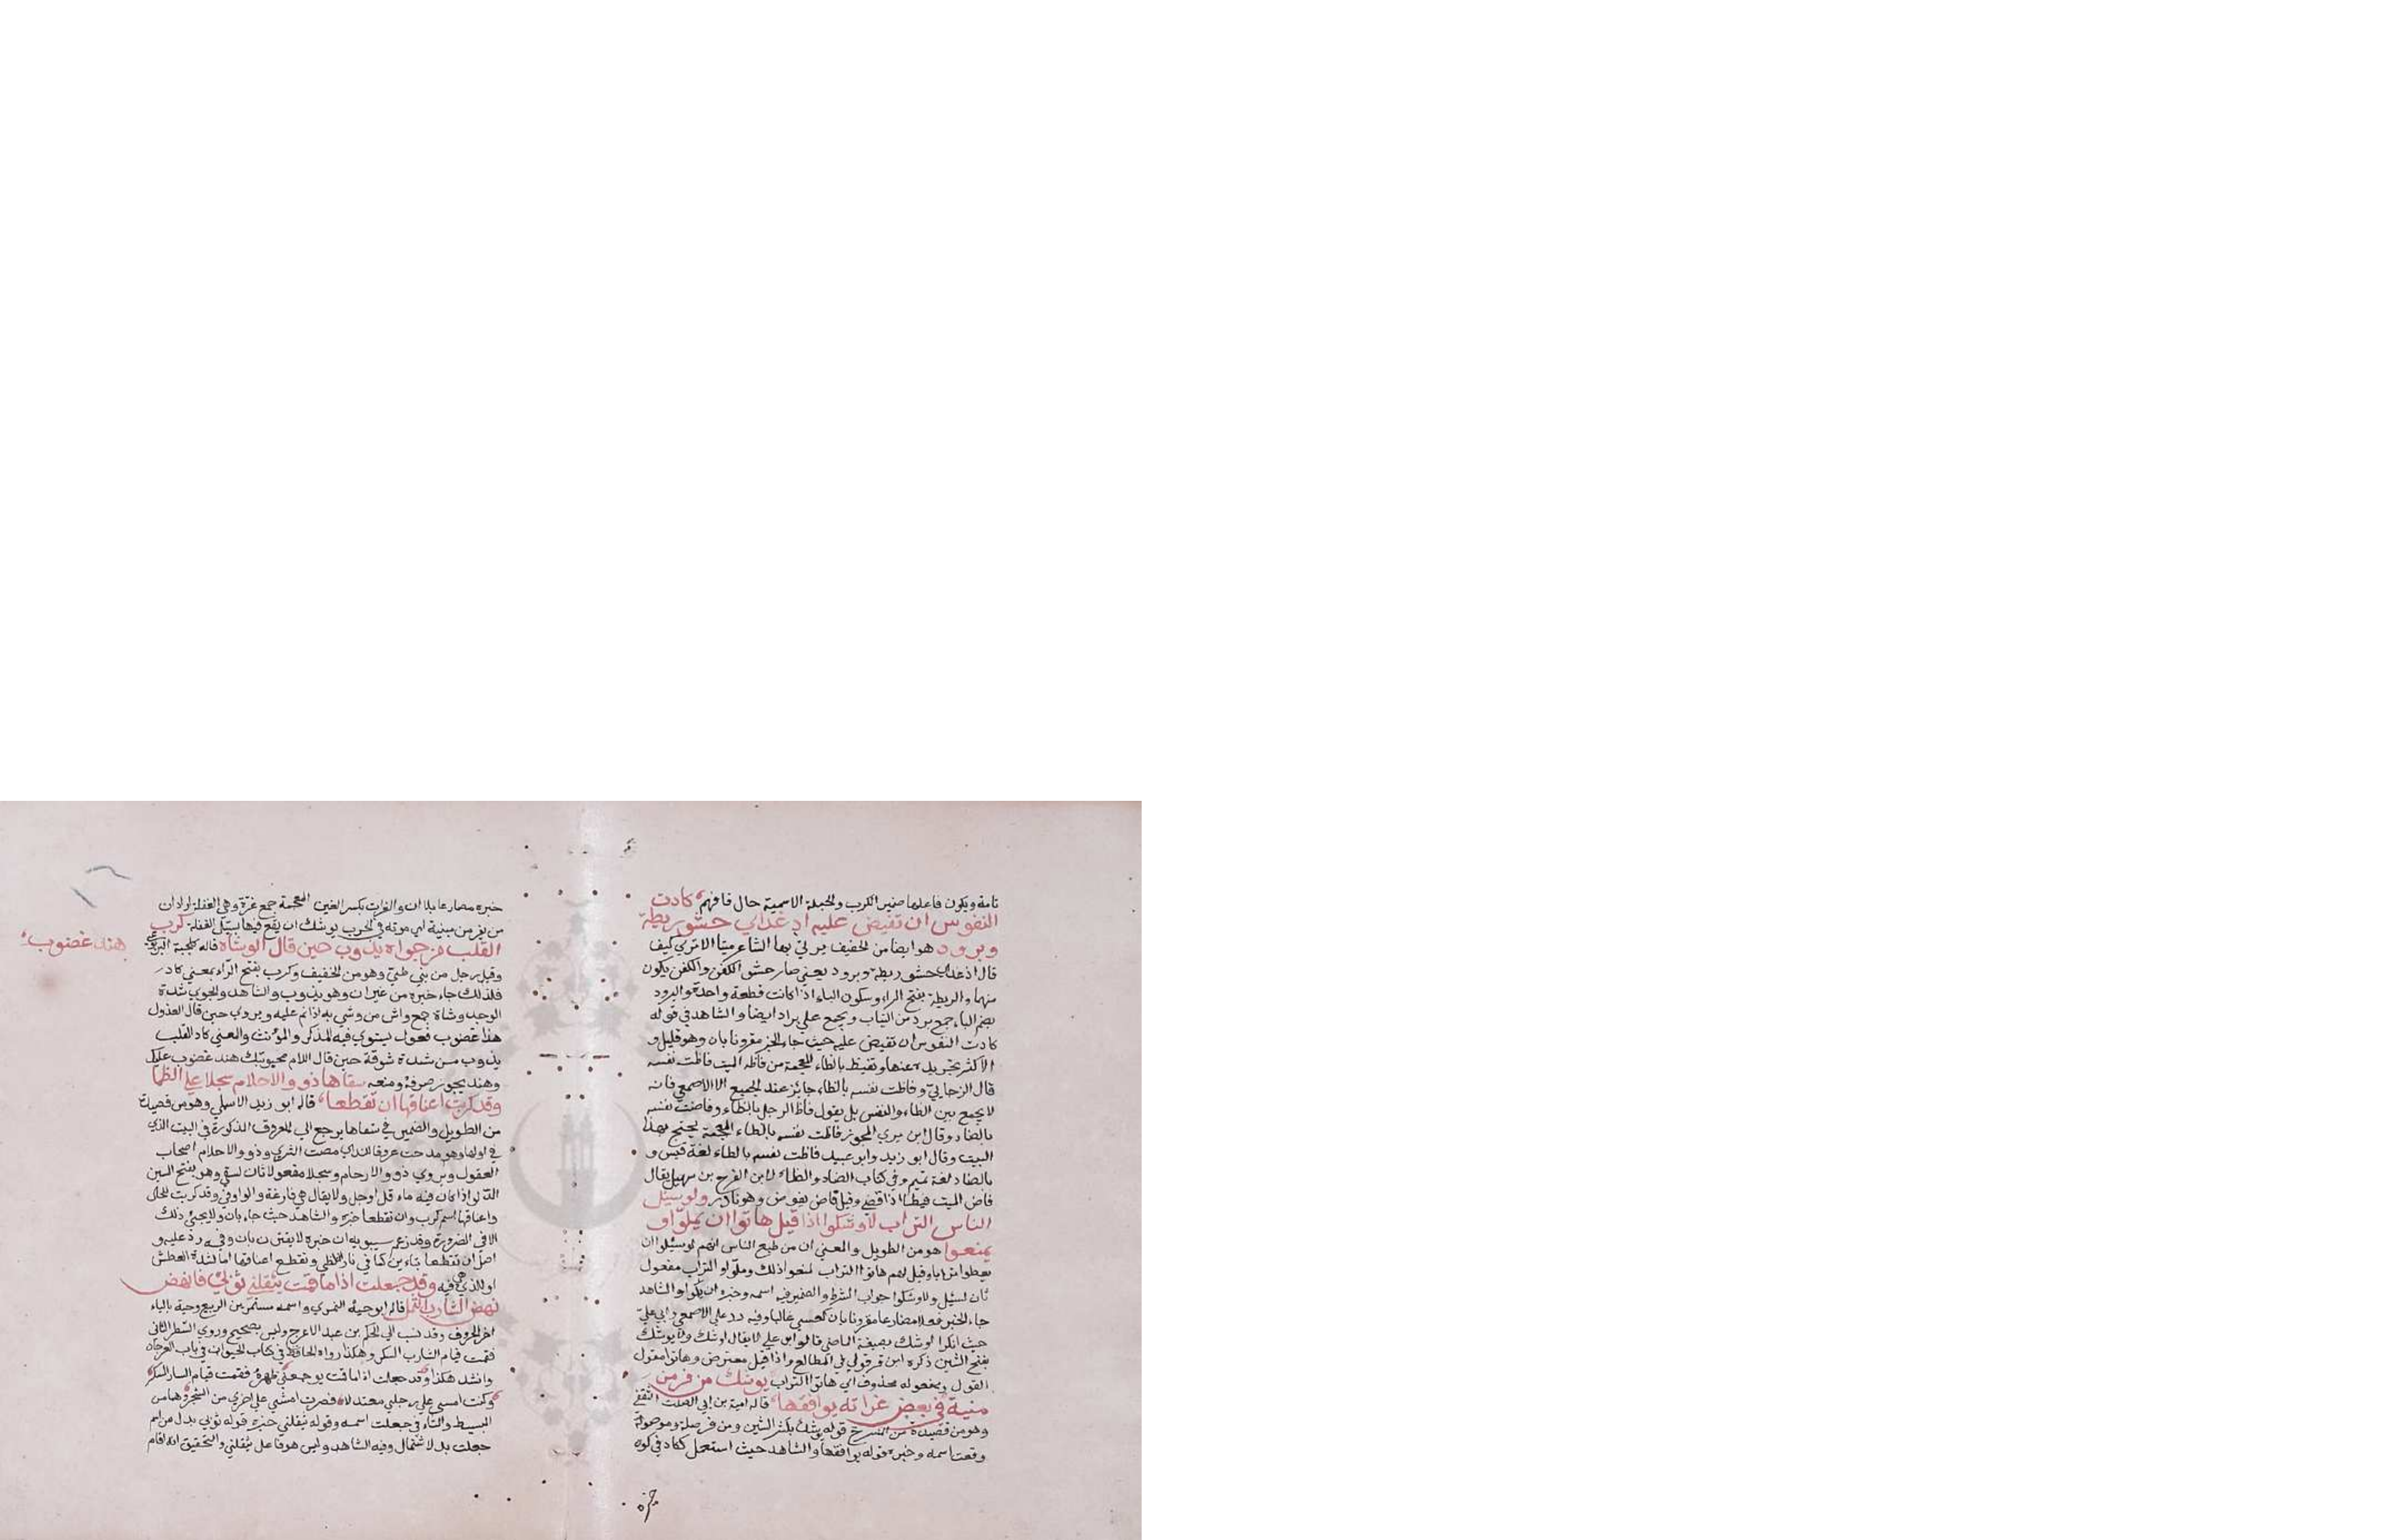 تامة ويكون فاعلها ضمير الكرب والجملة الاسمية حال فافهم كادت
النفوس ان تفيض عليه اذ غدا في حشو ريطة
وبرود هو ايضا من الخفيف يرثي بها الشاعر ميتا الا ترى كيف
قال اذ غدا في حشو ريطة وبرود يعني صار حشو الكفن والكفن يكون
منهما والريطة بفتح الراء وسكون الياء اذا كانت قطعة واحدة والبرود
بضم الباء جمع برد من الثياب ويجمع علي براد ايضا والشاهد في قوله
كادت النفوس ان تفيض عليه حيث جاء الخبر مقرونا بان وهو قليل و
الاكثر تجريده عنها وتفيظ بالظاء المعجمة من فاظ الميت فاظت نفسه
قال الزجاجي وفاظت نفسه بالظاء جايز عند الجميع الا الاصمعي فانه
لا يجمع بين الظاء والنفس بل يقول فاظ الرجل بالظاء وفاضت نفسه
بالضاد وقال ابن بري المجوز فاظت نفسه بالظاء المعجمة يحتج بهذا
البيت وقال ابو زيد وابو عبيد فاظت نفسه بالظاء لغة قيس و
بالضاد لغة تميم وفي كتاب الضاد والظاء لابن الفرج بن سهيل يقال
فاض الميت فيظا اذا قضي وقيل فاض يفوض وهو نادر ولو سئل
الناس التراب لاوشكوا اذا قيل هاتوا ان يملوا و
يمنعوا هو من الطويل والمعني ان من طبع الناس انهم لو سئلوا ان
يعطوا ترابا وقيل لهم هاتوا التراب لمنعوا ذلك وملوا و التراب مفعول
ثان لسئل ولاوشكوا جواب الشرط والضمير فيه اسمه وخبره ان يملوا والشاهد
جاء الخبر فعلا مضارعا مقرونا بان كعسي غالبا وفيه رد علي الاصمعي وابي علي
حيث انكرا اوشك بصيغة الماضي قالوا ابن علي لا يقال اوشك ولا يوشك
بفتح الشين ذكره ابن قرقول في المطالع واذا قيل معترض وهاتوا مقول
القول ومفعوله محذوف اي هاتوا التراب يوشك من فر من
منيته في بعض غراته يوافقها قاله امية بن ابي الصلت الثقفي
وهو من قصيدة من المنسرح قوله يوشك بكسر الشين ومن فر صلة وموصولة
وقعت اسمه وخبره قوله يوافقها والشاهد حيث استعمل ككاد في كون
خبره
خبره مضارعا بلا ان والغرات بكسر الغين المعجمة جمع غرة وهي الغفلة اراد ان
من يفر من منية اي موته في الحرب يوشك ان يقع فيها بتلك الغفلة كرب
القلب من جواه يذوب حين قال الوشاة قاله كلحبة اليربوعي
هند غضوب
وقيل رجل من بني طي وهو من الخفيف وكرب بفتح الراء بمعني كاد
فلذلك جاء خبره من غير ان وهو يذوب والشاهد والجوي شدة
الوجد وشاة جمع واش من وشي به اذا نم عليه ويروي حين قال العذول
هند غضوب فعول يستوي فيه المذكر والمؤنث والمعني كاد القلب
يذوب من شدة شوقه حين قال اللام محبوبتك هند غضوب عليك
وهند يجوز صرفه ومنعه سقاها ذوو الاحلام سجلا علي الظما
وقد كربت اعناقها ان تقطعا قاله ابو زيد الاسلمي وهو من قصيدة
من الطويل والضمير في سقاها يرجع الي العروق المذكورة في البيت الذي
في اولها وهو مدحت عروقا للندي مصت الثري وذوو الاحلام اصحاب
العقول ويروي ذوو الارحام وسجلا مفعول ثان لسقي وهو بفتح السين
الدلو اذا كان فيه ماء قل او جل ولا يقال هي فارغة والواو في وقد كربت للحال
واعناقها اسم كرب وان تقطعا خبره والشاهد حيث جاء بان ولا يجئ ذلك
الا في الضرورة وقد زعم سيبويه ان خبره لا يقترن بان وفيه رد عليه و
اصل ان تقطعا بتائين كما في نارا تلظي وتقطع اعناقها اما لشدة العطش
او للذي هي فيه وقد جعلت اذا ما قمت يثقلني ثوبي فانهض
نهض الشارب الثمل قاله ابو حية النميري واسمه مستمر بن الربيع وحية بالياء
اخر الحروف وقد نسب الي الحكم بن عبد الاعرج وليس بصحيح وروي الشطر الثاني
فقمت قيام الشارب السكر وهكذا رواه الحافظ في كتاب الحيوان في باب العرجان
وانشد هكذا وقد جعلت اذا ما قمت يوجعني ظهري فقمت قيام الشارب السكر
وكنت امشي علي رجلي معتدلا فصرت امشي علي اخري من الشجر وهما من
البسيط والتاء في جعلت اسمه وقوله يثقلني خبره قوله ثوبي بدل من اسم
جعلت بدل اشتمال وفيه الشاهد وليس هو فاعل يثقلني والتحقيق انه اقام